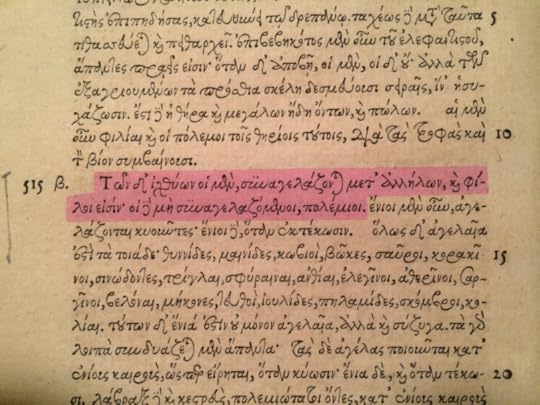 κτῆς ἐπιπηδήσας, καὶ τῷ δρεπάνῳ. ταχέως ἢ μετ' ταῦτα 5
ἢ πειθαρχεῖ. ἐπιβεβηκότος μὲν οὖν τοῦ ἐλεφαντιστοῦ,
ἅπαντες πραεῖς εἰσιν· ὅταν δ' ἀποβῇ, οἱ μὲν, οἱ δ' οὔ· ἀλλὰ τῶν
ἐξαγριουμένων τὰ πρόσθια σκέλη δεσμεύουσι σειραῖς, ἵν' ἡσυ-
χάζωσιν. ἔστι δὲ ἡ θήρα καὶ μεγάλων ἤδη ὄντων, καὶ πώλων. αἱ μὲν
οὖν φιλίαι καὶ οἱ πόλεμοι τοῖς θηρίοις τούτοις, διὰ τὰς τροφὰς καὶ 10
τὸν βίον συμβαίνουσι.
515 β. Τῶν δ' ἰχθύων οἱ μὲν, συναγελάζονται μετ' ἀλλήλων, καὶ φί-
λοι εἰσίν· οἱ δὲ μὴ συναγελαζόμενοι, πολέμιοι. ἔνιοι μὲν οὖν, ἀγε-
λάζονται κυοῦντες· ἔνιοι δὲ, ὅταν ἐκτέκωσιν. ὅλως δ' ἀγελαῖα
ἐστὶ τὰ τοιάδε· θυννίδες, μαινίδες, κωβιοὶ, βῶκες, σαῦροι, κορακῖ- 15
νοι, σινώδοντες, τρίγλαι, σφύραιναι, ἀνθίαι, ἐλεγῖνοι, ἀθερῖνοι, σαρ-
γῖνοι, βελόναι, μήκωνες, τευθοὶ, ἰουλίδες, πηλαμίδες, σκόμβροι, κο-
λίαι. τούτων δ' ἔνιά ἐστιν οὐ μόνον ἀγελαῖα, ἀλλὰ καὶ σύζυγα. τὰ γὰρ
λοιπὰ συνδυάζεται μὲν ἅπαντα· τὰς δὲ ἀγέλας ποιοῦνται κατ'
ἐνίους καιροὺς, ὥσπερ εἴρηται, ὅταν κύωσιν· ἔνια δὲ, καὶ ὅταν τέκω- 20
σι. λάβραξ καὶ κεστρεὺς, πολεμιώτατοι ὄντες, κατ' ἐνίους καιροὺς